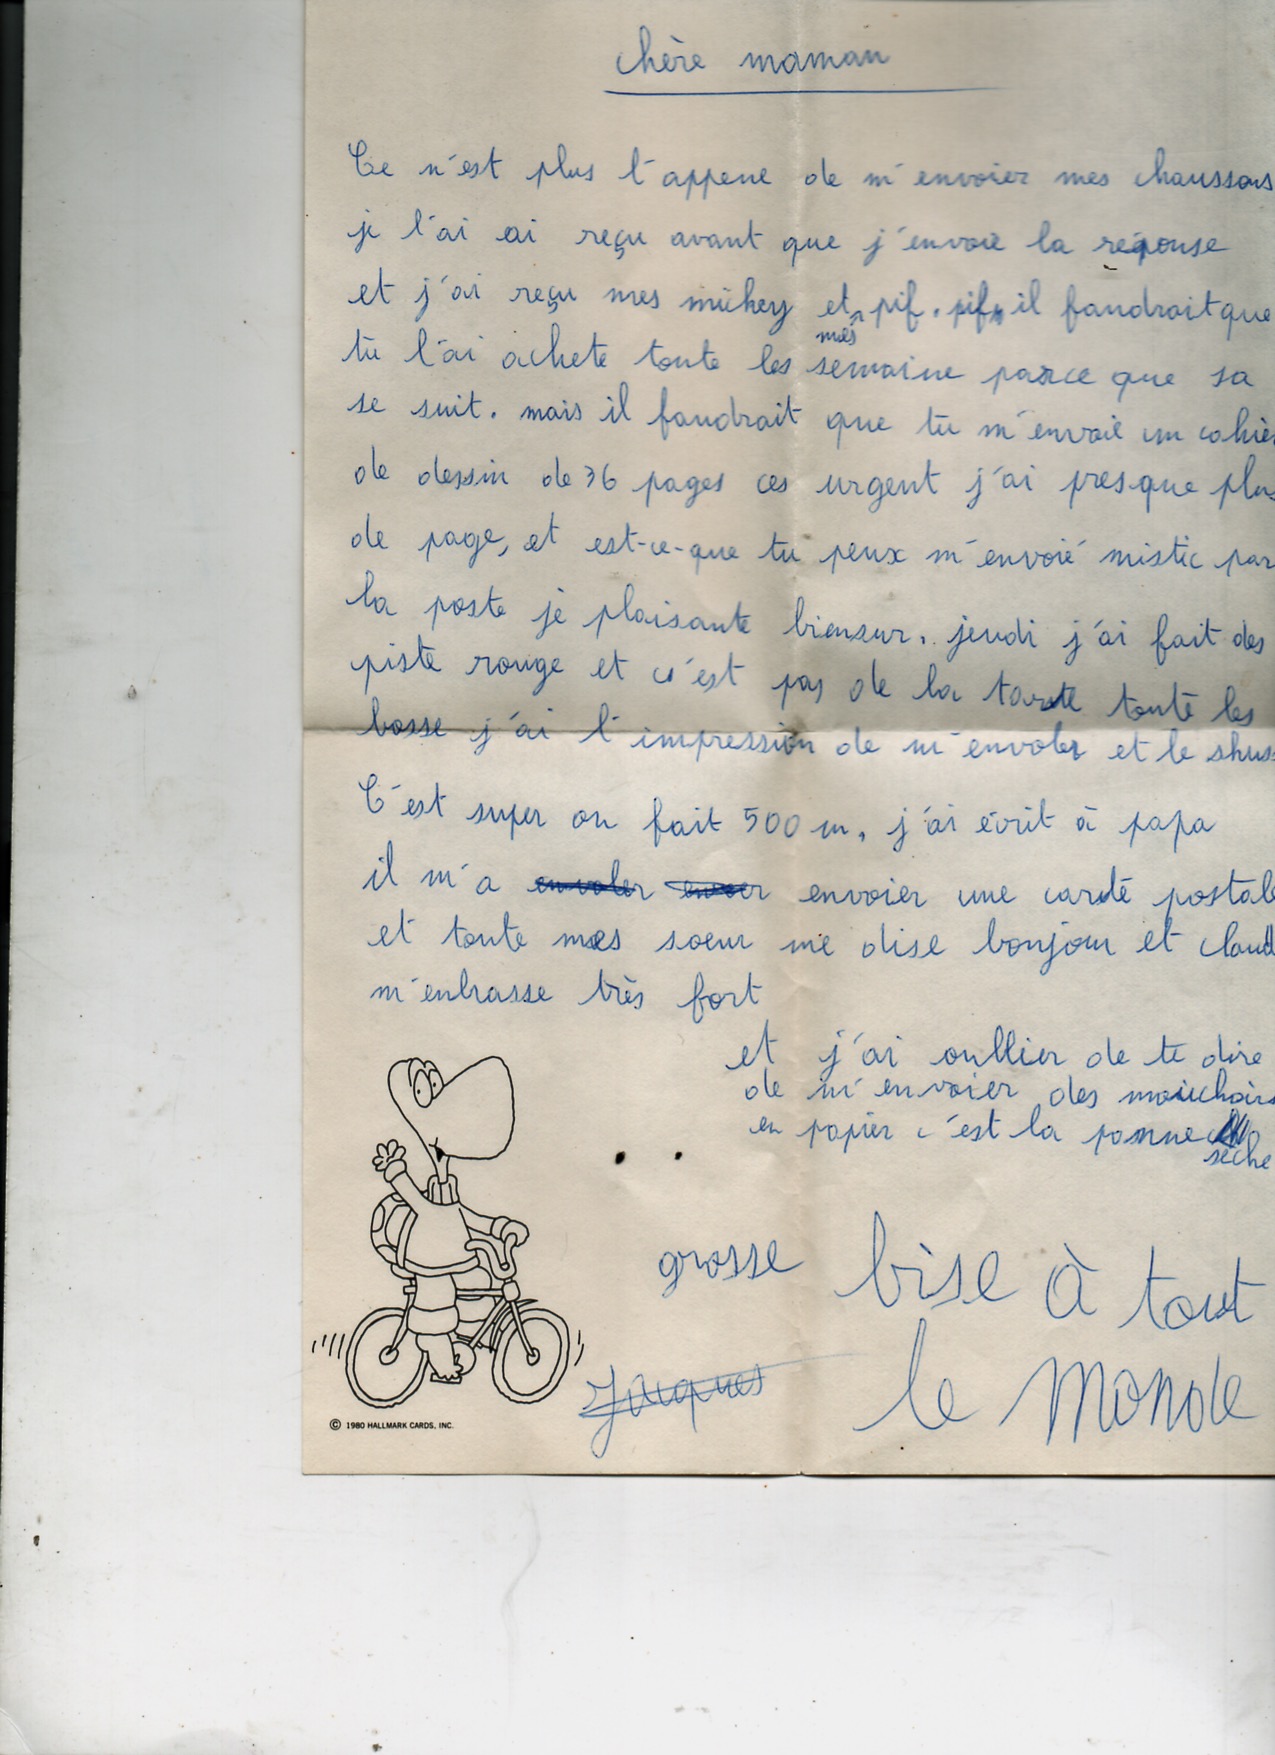 chère maman
Ce n'est plus l'appene de m'envoier mes chaussons
je l'ai ai reçu avant que j'envoie la reponse
et j'ai reçu mes mickey et mes pif. pif il faudrait que
tu l'ai achete toute les semaine parce que sa
se suit. mais il faudrait que tu m'envoie un cahier
de dessin de 36 pages ces urgent j'ai presque plus
de page, et est-ce-que tu peux m'envoié mistic par
la poste je plaisante biensur. jeudi j'ai fait des
piste rouge et c'est pas de la tarte toute les
bosse j'ai l'impression de m'envoler et le shuss
C'est super on fait 500 m, j'ai écrit à papa
il m'a envoler envoer envoier une carte postale
et toute mes soeur me dise bonjour et claud
m'enbrasse très fort
et j'ai oullier de te dire
de m'envoier des mouchoirs
en papier c'est la panne
sèche
grosse bise à tout
le Monde
Jacques
© 1980 HALLMARK CARDS, INC.